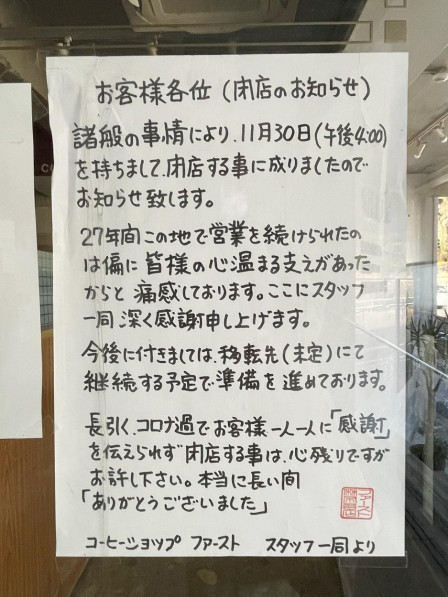 お客様各位(閉店のお知らせ)
諸般の事情により、11月30日(午後4:00)
を持ちまして、閉店する事に成りましたので
お知らせ致します。
27年間この地で営業を続けられたの
は偏に皆様の心温まる支えがあった
からと痛感しております。ここにスタッフ
一同深く感謝申し上げます。
今後に付きましては、移転先(未定)にて
継続する予定で準備を進めております。
長引く、コロナ過でお客様一人一人に「感謝」
を伝えられず閉店する事は、心残りですが
お許し下さい。本当に長い間
「ありがとうございました」
コーヒーショップ ファースト スタッフ一同より